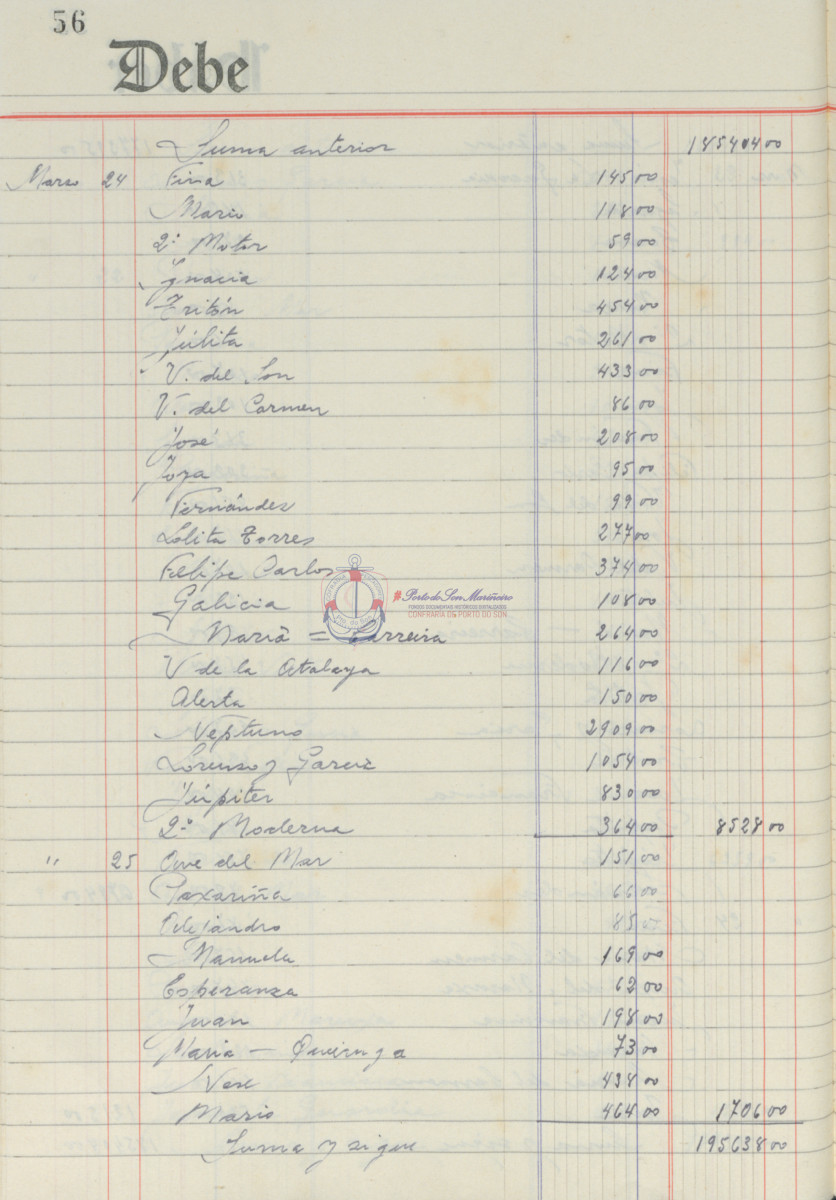 56
Debe
Suma anterior 185404 00
Marzo 24 Fina 145 00
Mario 118 00
2º Motor 59 00
Ignacia 124 00
Tritón 454 00
Júlita 261 00
V. del Son 433 00
V. del Carmen 86 00
José 208 00
Joya 95 00
Fernández 99 00
Lolita Torres 277 00
Felipe Carlos 374 00
Galicia 108 00
María = Carreira 264 00
V de la Atalaya 116 00
Alerta 150 00
Neptuno 2909 00
Lorenzo y García 1054 00
Júpiter 830 00
2ª Moderna 364 00 8528 00
" 25 Ave del Mar 151 00
Paxariña 66 00
Alejandro 85 00
Manuela 169 00
Esperanza 62 00
Juan 198 00
Maria — Queiruga 73 00
438 00
Mario 464 00 1706 00
Suma y sigue 195638 00
COFRADÍA PESCADORES
PTO. DO SON
#PortodoSonMariñeiro
FONDOS DOCUMENTAIS HISTÓRICOS DIXITALIZADOS
CONFRARÍA DE PORTO DO SON